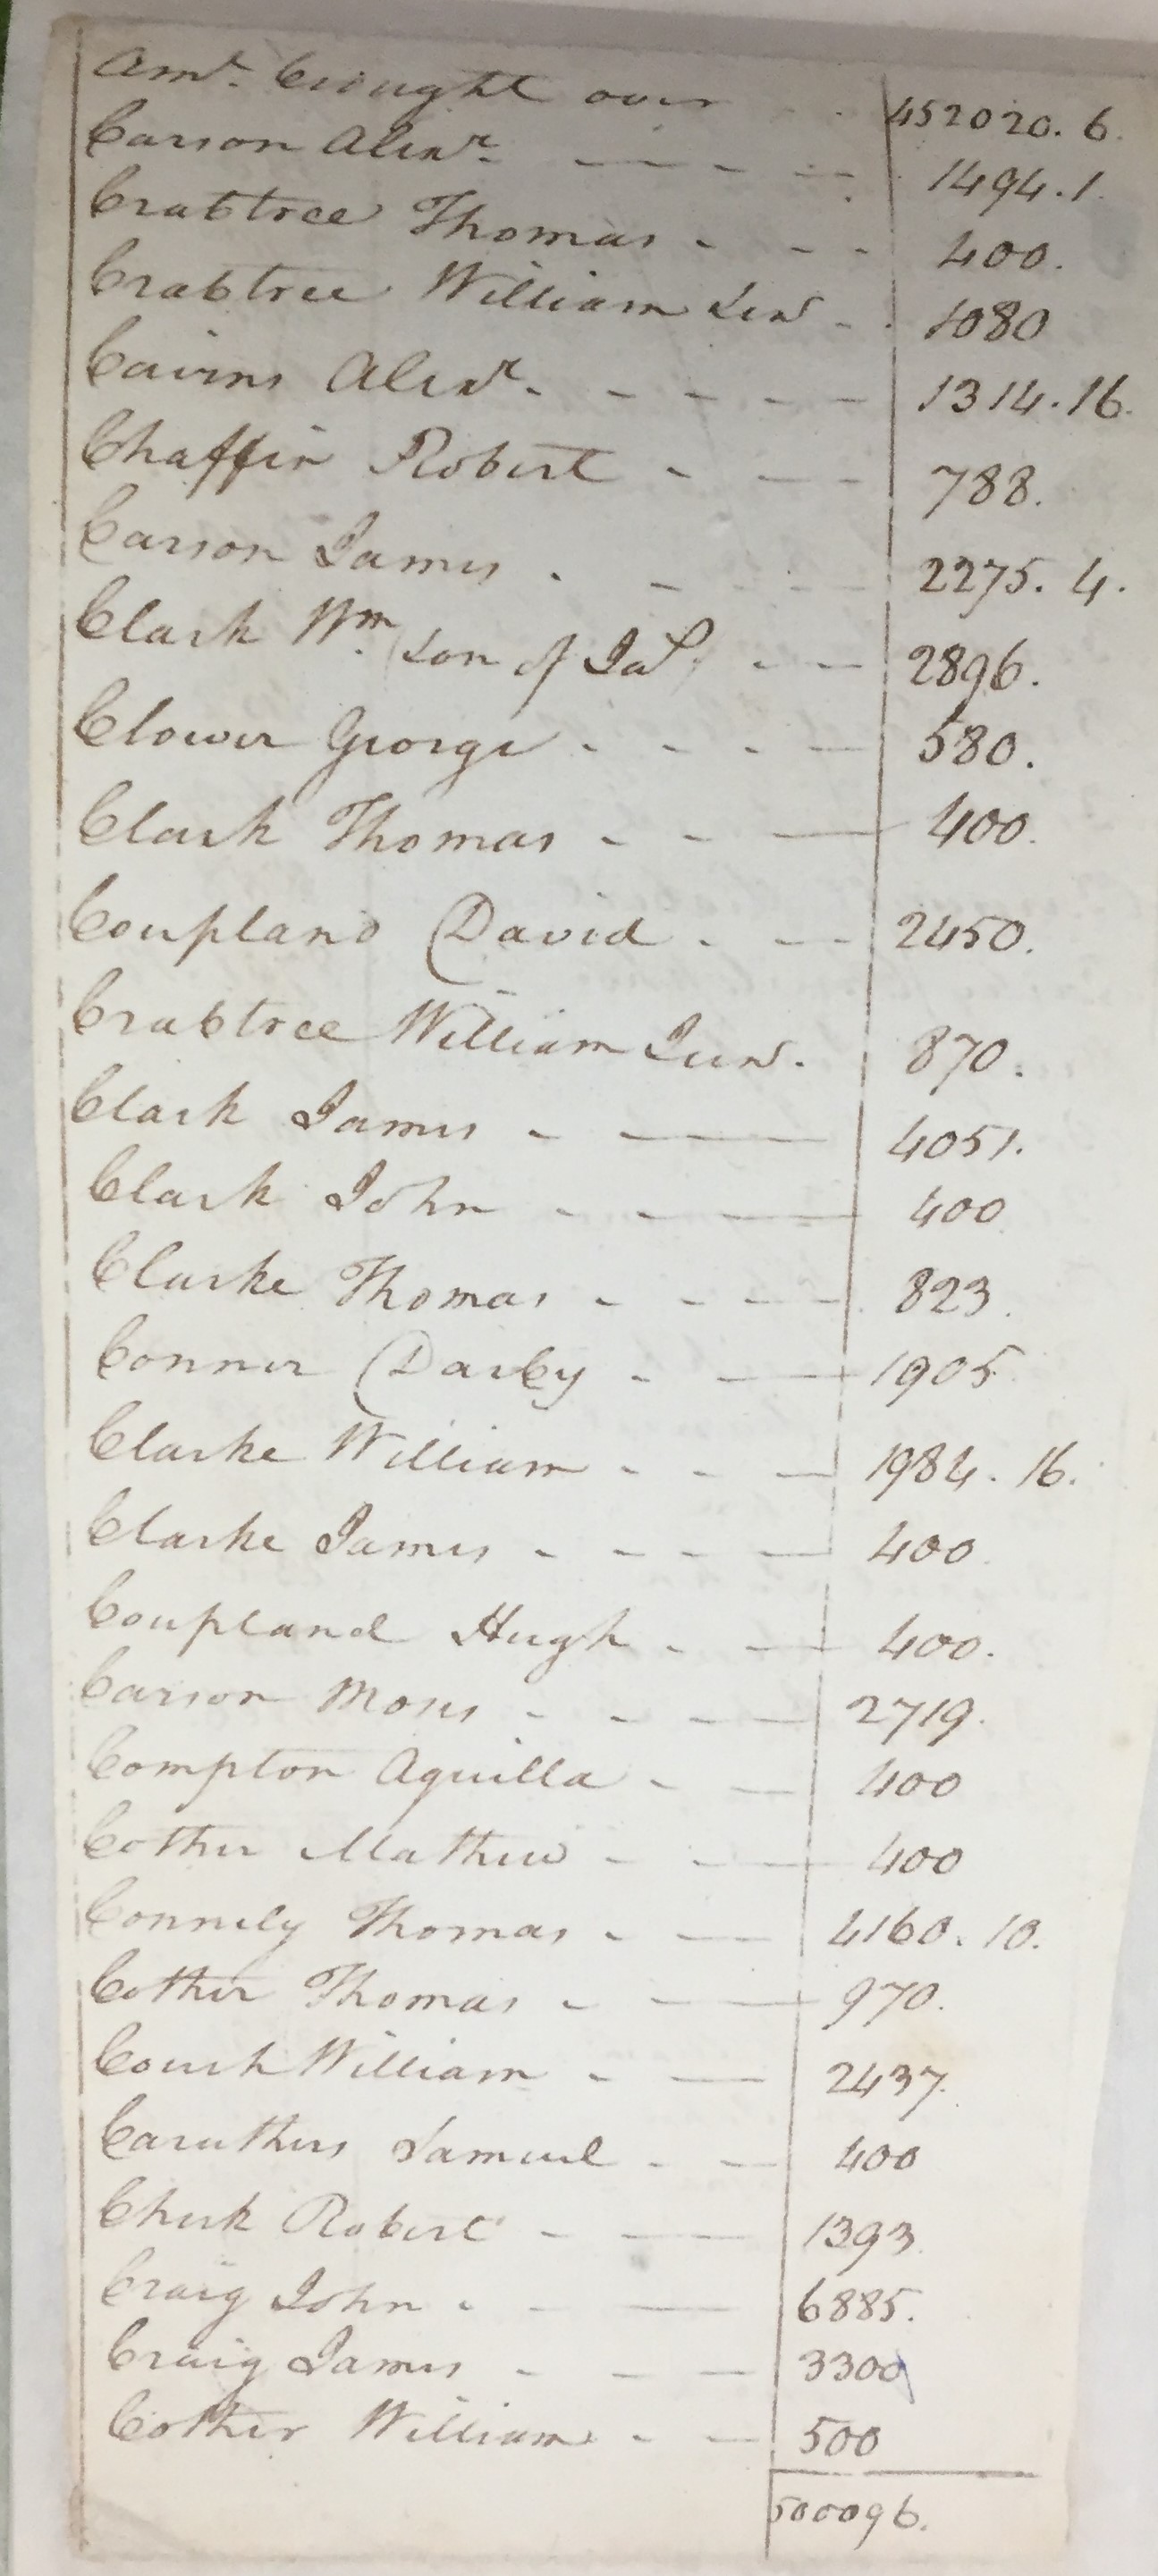 Amt. brought over - - 452020.6.
Carson Alexr. - - - - 1494.1.
Crabtree Thomas - - - 400.
Crabtree William Senr - - 1080
Cairns Alexr. - - - - - 1314.16.
Chaffin Robert - - - 788.
Carson James . - - - 2275. 4.
Clark Wm. (son of Jas.) - - - 2896.
Clower George - - - - 580.
Clark Thomas - - - 400.
Coupland David - - - 2450.
Crabtree William Junr. 870.
Clark James - - 4051.
Clark John - - - 400
Clarke Thomas - - - - 823.
Conner Darby - - 1905
Clarke William - - - 1984. 16.
Clarke James - - - - 400
Coupland Hugh - - 400.
Carson Moses - - - - 2719.
Compton Aquilla - - 400
Cother Mathew - - 400
Connely Thomas - - 4160. 10.
Cother Thomas - - 970.
Couch William - - 2437.
Caruthers Samuel - - 400
Cheek Robert - - 1393
Craig John - - - 6885.
Craig James - - - 3300
Cother William - - 500
500096.